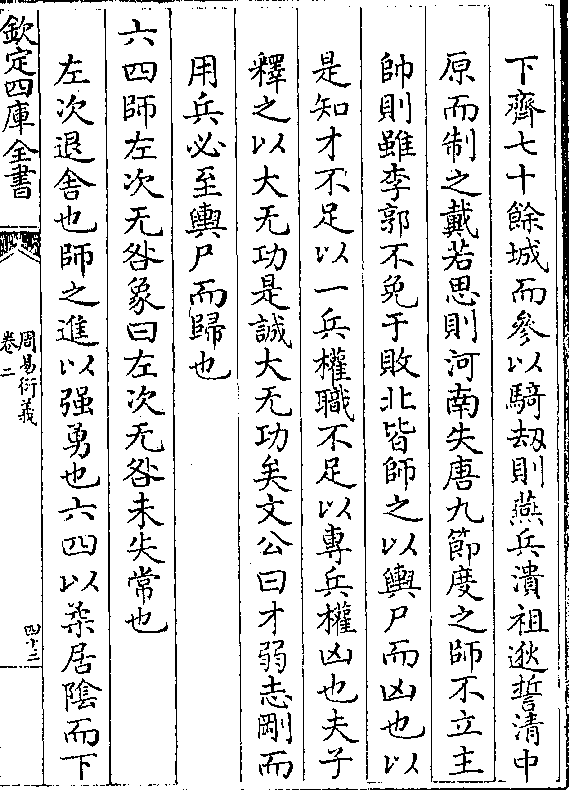 下齊七十餘城而參以騎劫則燕兵潰祖逖誓清中
原而制之戴若思則河南失唐九節度之師不立主
帥則雖李郭不免于敗北皆師之以輿尸而凶也以
是知才不足以一兵權職不足以專兵權凶也夫子
釋之以大无功是誠大无功矣文公曰才弱志剛而
用兵必至輿尸而歸也
六四師左次无咎象曰左次无咎未失常也
左次退舍也師之進以强勇也六四以柔居陰而下
欽定四庫全書
周易衍義
卷二
四十三